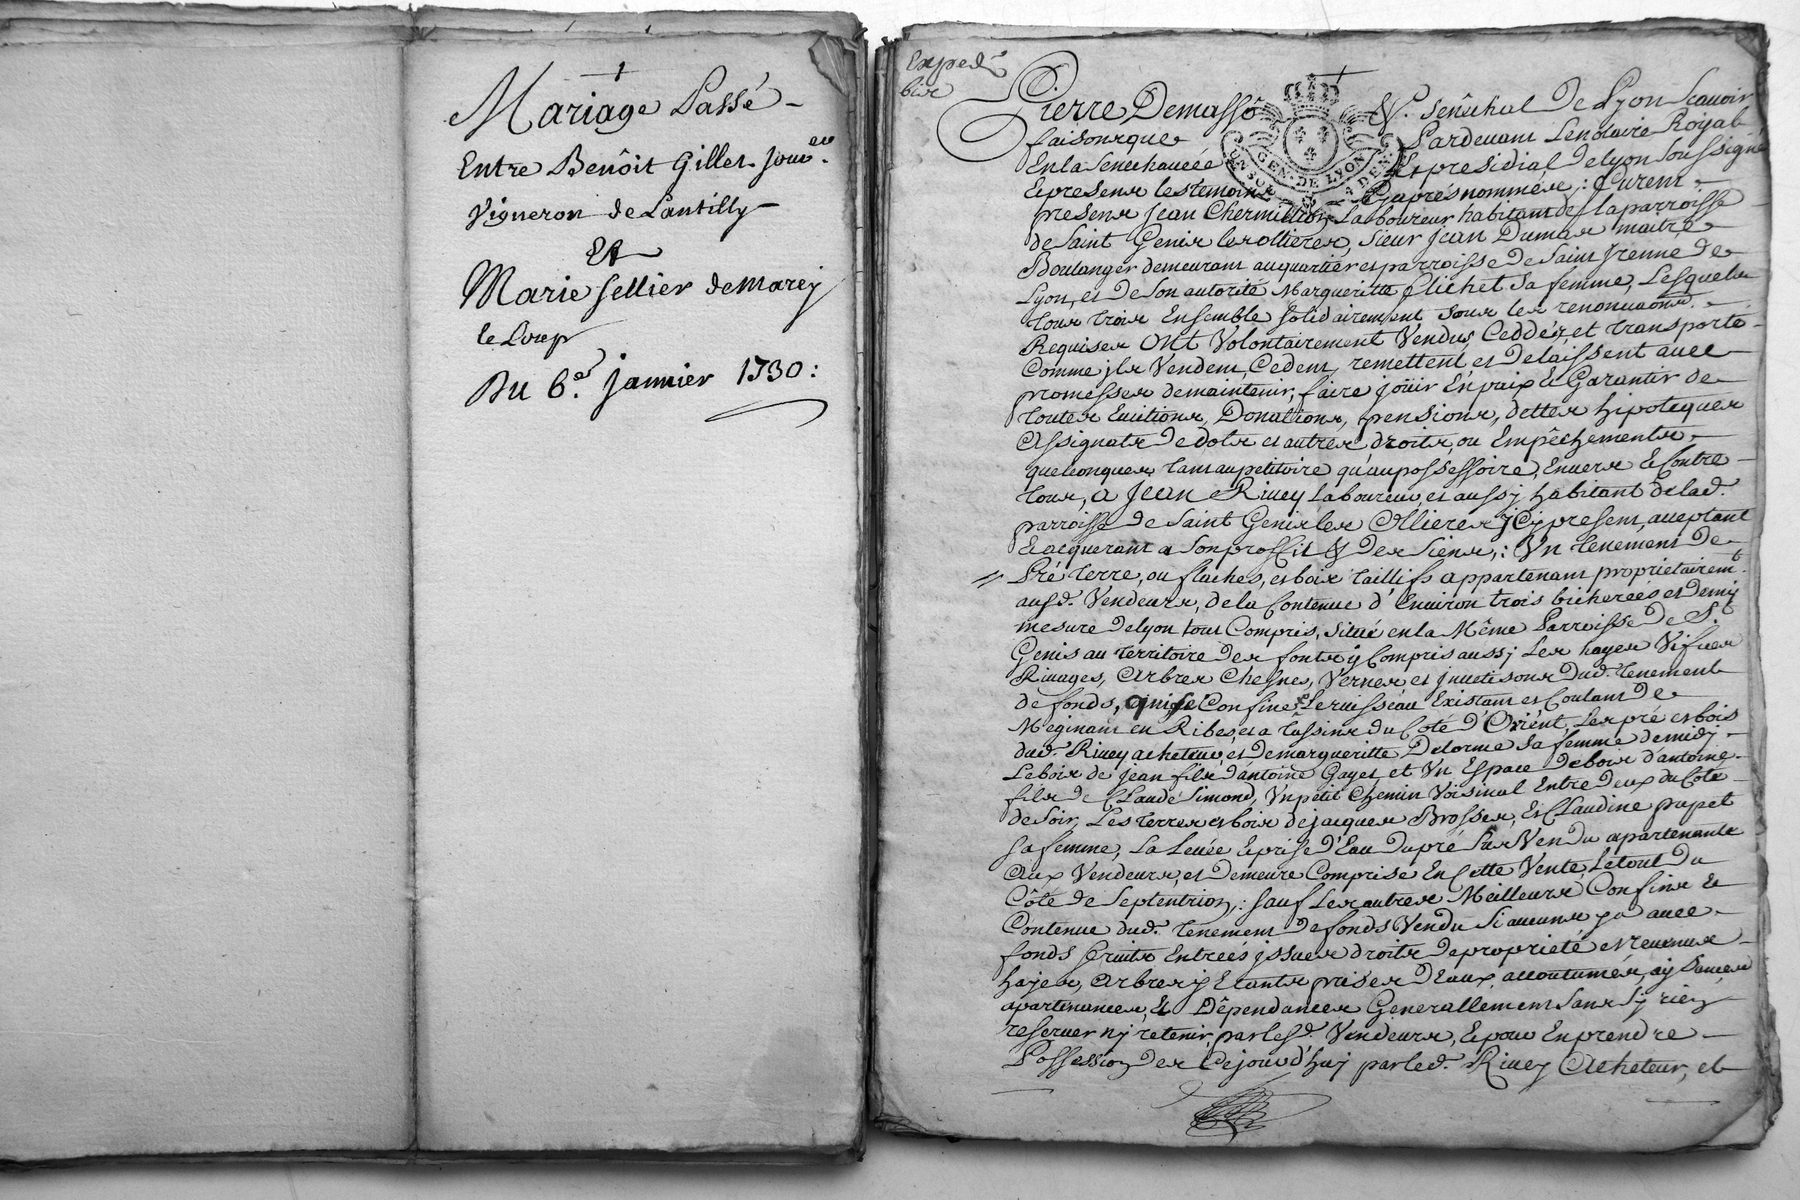 Mariage Passé
Entre Benôit Gillet Jouv.
Vigneron de Lantilly
Et
Marie Sellier de Marey
le Loup
Du 6.e Janvier 1730:
Exped
bir
Pierre Demassô &. Senêchal De Lyon Scavoir
faisons que Pardevant Le Notaire Royal
En la Senechaucée Et presidial De lyon Soussigné
& presens les temoins Cy aprés nommés, : furent
GEN. DE LYON
presens Jean Chermillion Laboureur habitant de la parroisse
de Saint Genis les ollieres, Sieur Jean Dumas maitre
Boulanger demeurant au quartier et parroisse de Saint Irenne de
Lyon, et De Son autorité Margueritte Clichet Sa femme, Lesquels
tous trois Ensemble Solidairement Sous les renonciaons
Requises ONt Volontairement Vendus, Ceddés, et transporté
Comme jls Vendent, Cedent, remettent et Delaissent avec
promesses de maintenir, faire joüir En paix & Garantir de
toutes Evitions, Donations, pensions, dettes hipoteques
Assignats De dots et autres droits, ou Empêchements,
quelconques tant au petitoire qu'au possessoire, Envers & Contre
tous, a Jean Rivey Laboureur et aussy habitant de lad.
parroisse de Saint Genis les Ollieres jCy present, acceptant
& acquerant a Son proffit & Des Siens, : Un tenement De
Pré Terre, ou flaches, et bois taillifs appartenant proprietairemt.
ausd. Vendeurs, de la Contenue d'Environ trois bicherées et Demy
mesure De lyon tout Compris, Situé en la Même Parroisse De St.
Genis au Territoire Des fonts y Compris aussy Les hayes Vifves
Rivages, Arbres Chesnes, Vernes et jnvetisons Dud. tenement
de fonds, qui se Confine, Le ruisseau Existant et Coulant De
Meginant en Ribes, et a Tassins du Coté D'Orient, Les pré et bois
dud. Rivey acheteur, et De margueritte Delorme Sa femme de midy
Le bois de Jean fils d'antoine Gayet, et Un Espace De bois d'antoine
fils de Claude Simond, Un petit Chemin Voisinal Entre Deux du Coté
de Soir, Les terres et bois de jacques Brosses, Et Claudine pupet
Sa femme, La Levée & prise D'Eau du pré Sus Vendu apartenante
Aux Vendeurs, et Demeure Comprise En Cette Vente, Le tout Du
Côté de Septentrion, : Sauf Les autres Meilleurs Confins &
Contenue dud. tenement De fonds Vendu Si aucuns y a avec
fonds fruits Entrées jssues droits De proprieté et revenus
hayes, Arbres y Etants prises D'Eaux accoutumés, aysances
apartenances, & Dêpendances Generallement Sans S'y rien
reserver ny retenir, par lesd. Vendeurs, & pour En prendre
Possession Des Cejourd'huy par led. Rivey Acheteur, et